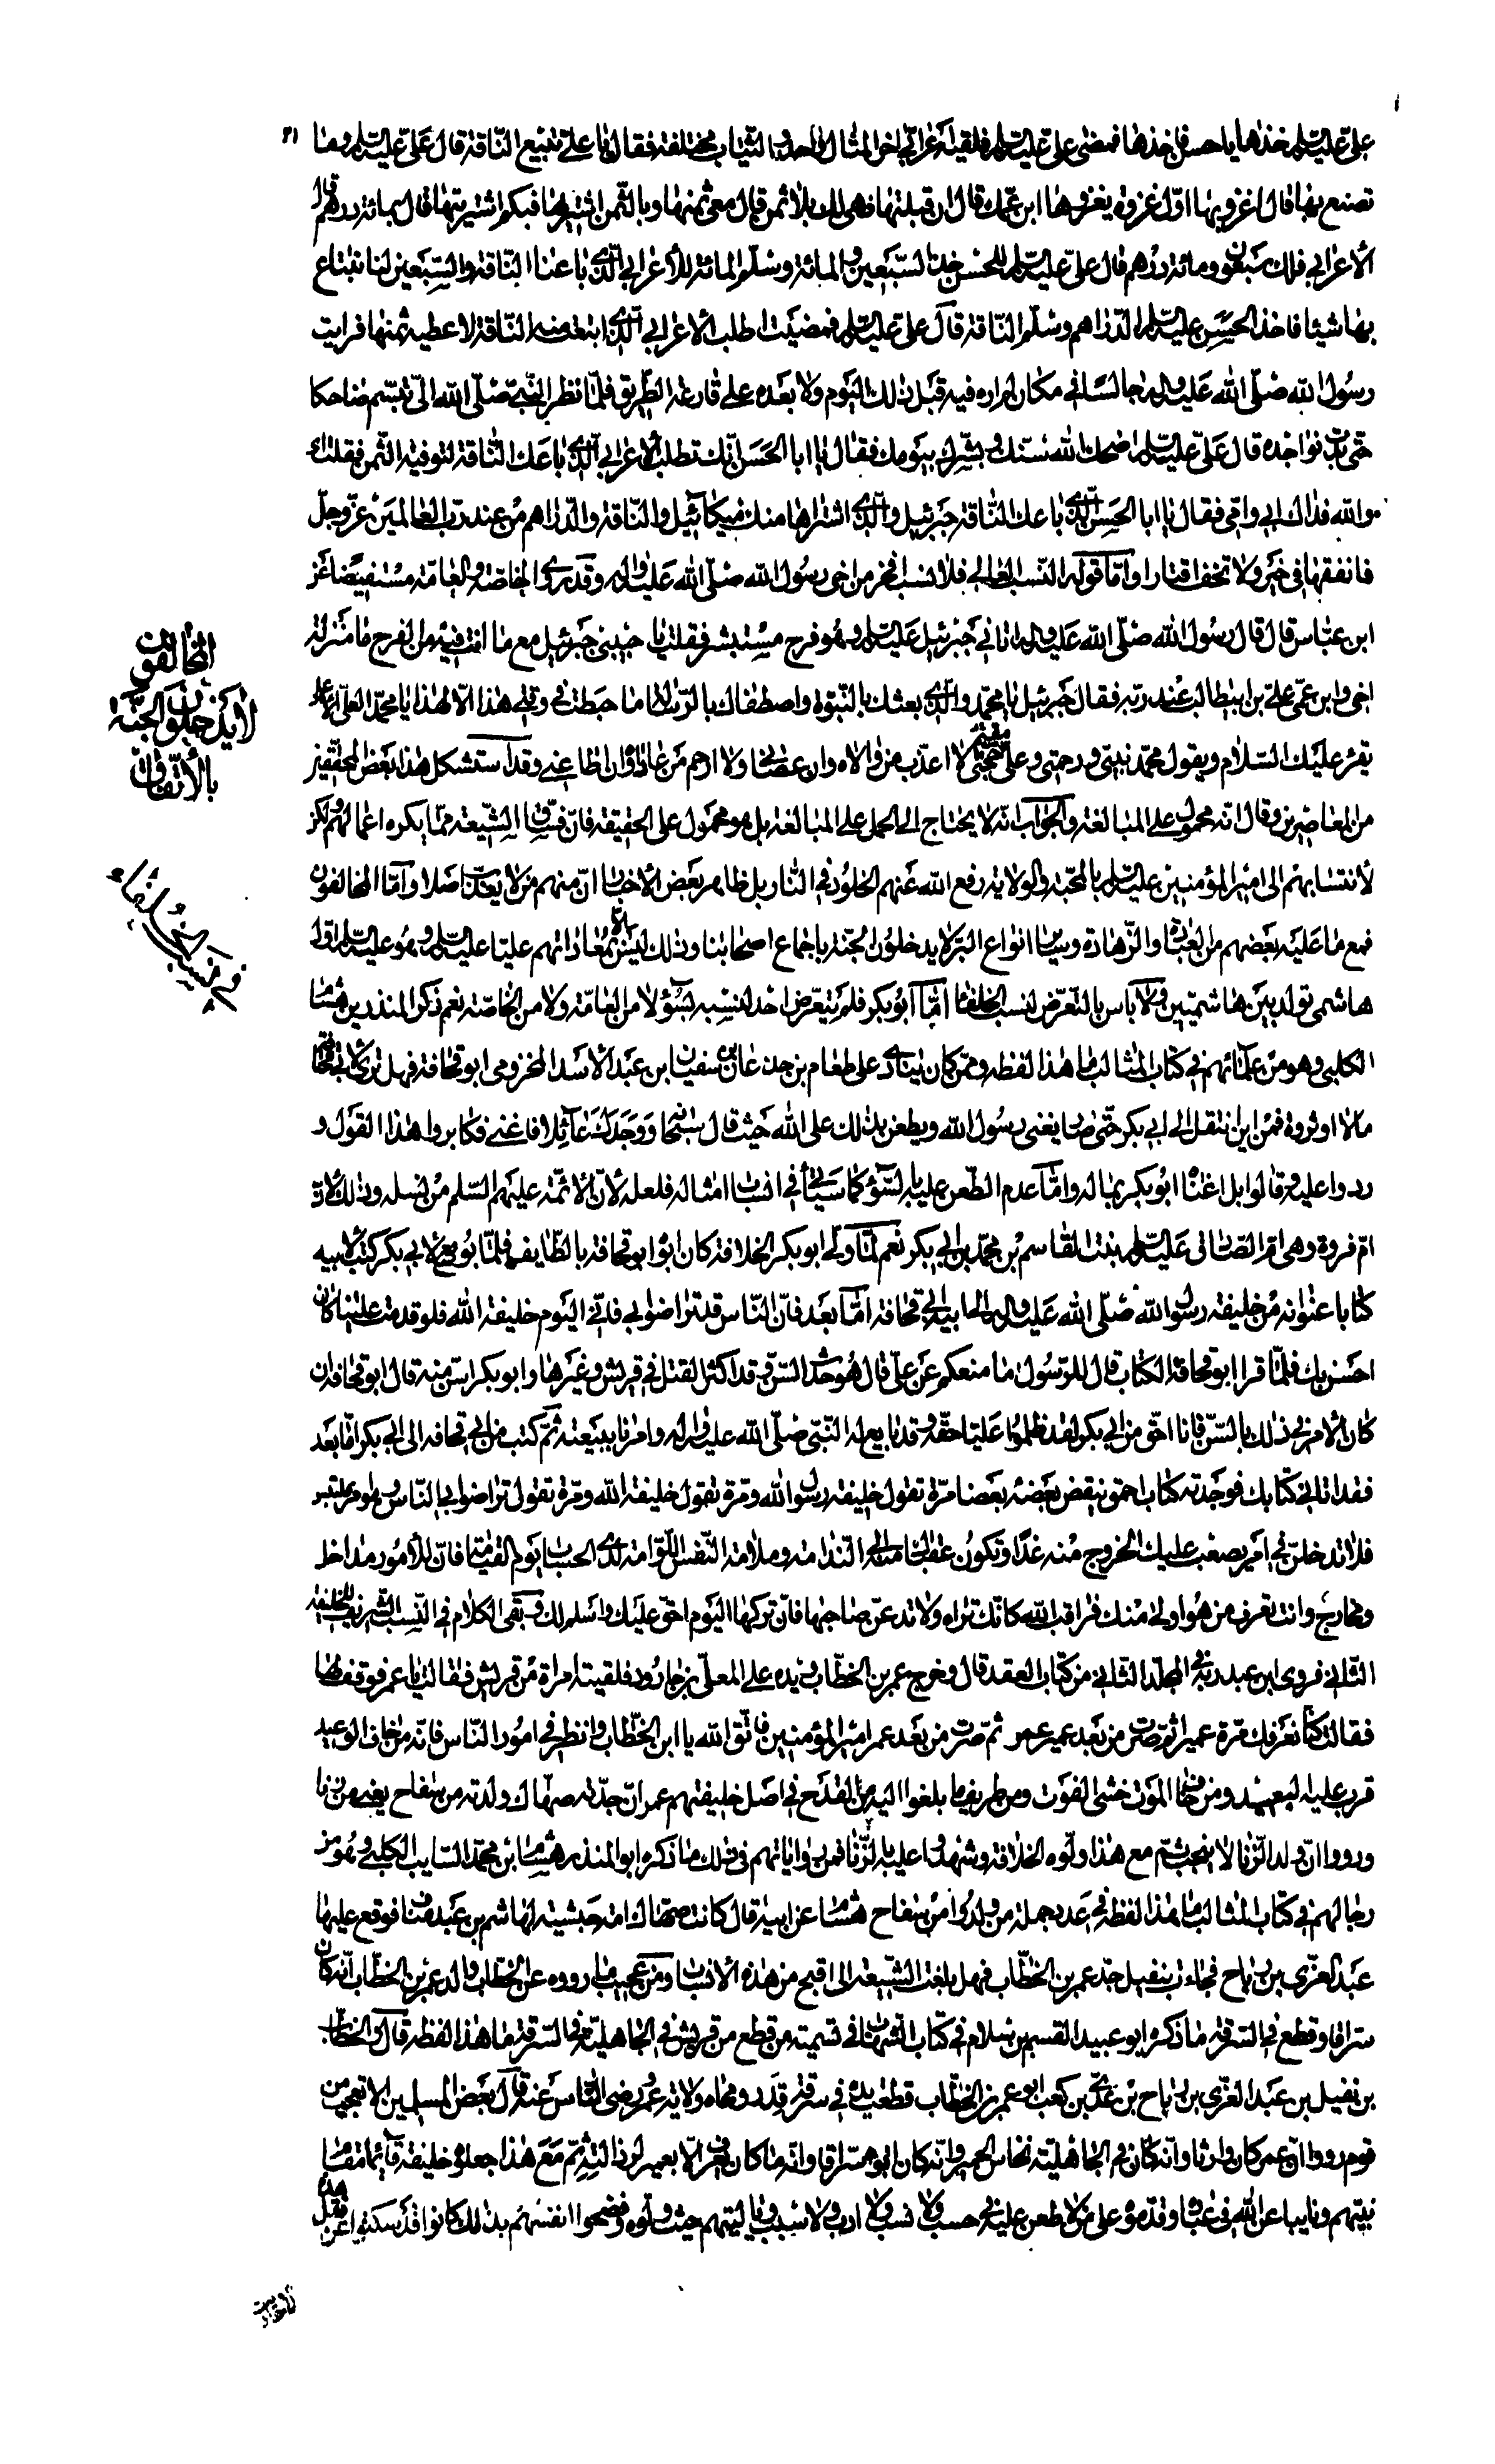 ٢١
علي عليه السلم خذها يا حسن فاخذها فمضى علي عليه السلم فلقيه اعرابي اخر المثال واحد والثياب مختلفة فقال يا علي تبيع الناقة قال علي عليه السلم وما
تصنع بها قال اغزو بها اول غزوة يغزوها ابن عمك قال ان قبلتها فهي لك بلا ثمن قال معي ثمنها وبالثمن اشتريها فبكم اشتريتها قال بمائة درهم قال
الاعرابي فلك سبعون ومائة درهم قال علي عليه السلم للحسن خذ السبعين والمائة وسلم المائة للاعرابي الذي باعنا الناقة والسبعين لنا نبتاع
بها شيئا فاخذ الحسن عليه السلم الدراهم وسلم الناقة قال علي عليه السلم فمضيت اطلب الاعرابي الذي ابتعت منه الناقة لاعطيه ثمنها فرايت
رسول الله صلى الله عليه واله جالسا في مكان لم اره فيه قبل ذلك اليوم ولا بعده على قارعة الطريق فلما نظر النبي صلى الله الي تبسم ضاحكا
حتى بدت نواجذه قال علي عليه السلم اضحك الله سنك وبشرك بيومك فقال يا ابا الحسن انك تطلب الاعرابي الذي باعك الناقة لتوفيه الثمن فقلت اي
والله فداك ابي وامي فقال يا ابا الحسن الذي باعك الناقة جبرئيل والذي اشتراها منك ميكائيل والناقة والدراهم من عند رب العالمين عز وجل
فانفقها في خير ولا تخف اقتارا واما قوله النسب العالي فلا نسب افخر من اخي رسول الله صلى الله عليه واله وقد روى الخاصة والعامة مستفيضا عن
ابن عباس قال قال رسول الله صلى الله عليه واله اتاني جبرئيل عليه السلم وهو فرح مستبشر فقلت يا حبيبي جبرئيل مع ما انت فيه من الفرح ما منزلة
اخي وابن عمي علي بن ابيطالب عند ربه فقال جبرئيل يا محمد والذي بعثك بالنبوة واصطفاك بالرسالة ما هبطت في وقتي هذا الا لهذا يا محمد العلي الاعلى
يقرء عليك السلام ويقول محمد نبيي ورحمتي وعلي مقيم حجتي لا اعذب من والاه وان عصاني ولا ارحم من عاداه وان اطاعني وقد استشكل هذا بعض المحققين
من المعاصرين وقال انه محمول على المبالغة والجواب انه لا يحتاج الى الحمل على المبالغة بل هو محمول على الحقيقة فان فساق الشيعة مما يكره اعمالهم ولكن
لانتسابهم الى امير المؤمنين عليه السلم بالمحبة والولاية رفع الله عنهم الخلود في النار بل ظاهر بعض الاخبار ان منهم من لا يعذب اصلا واما المخالفون
فمع ما عليه بعضهم من العبادة والزهادة وساير انواع البر لا يدخلون الجنة باجماع اصحابنا وذلك ليس الا لمعاداتهم عليا عليه السلم وهو عليه السلم اول
هاشمي تولد بين هاشميين ولا باس بالتعرض لنسب الخلفا اما ابو بكر فلم يتعرض احد لنسبه بسوء لا من العامة ولا من الخاصة نعم ذكر المنذر بن هشام
الكلبي وهو من علمائهم في كتاب المثالب ما هذا لفظه وممن كان ينادي على طعام بن جدعان سفيان ابن عبد الاسد المخزومي ابو قحافة فهل ترى لابي قحافة
مالا او ثروة فمن اين انتقل الى ابي بكر حتى صار يغني رسول الله ويطعن بذلك على الله حيث قال سبحانه ووجدك عائلا فاغنى فكابروا هذا القول و
ردوا عليه وقالوا بل اغناه ابو بكر بماله واما عدم الطعن عليه بالسوء كما سياتي في انساب امثاله فلعله لان الائمة عليهم السلم من نسله وذلك لان
ام فروة وهي ام الصادق عليه السلم بنت القاسم بن محمد بن ابي بكر نعم لما ولي ابو بكر الخلافة كان ابوه ابو قحافة بالطايف فلما بويع لابي بكر كتب لابيه
كتابا عنوانه من خليفة رسول الله صلى الله عليه واله الى ابيه ابي قحافة اما بعد فان الناس قد تراضوا بي فاني اليوم خليفة الله فلو قدمت علينا كان
احسن بك فلما قرا ابو قحافة الكتاب قال للرسول ما منعكم عن علي قال هو حدث السن وقد اكثر القتل في قريش وغيرها وابو بكر اسن منه قال ابو قحافة ان
كان الامر في ذلك بالسن فانا احق من ابي بكر لقد ظلموا عليا حقه وقد بايع له النبي صلى الله عليه واله وامرنا ببيعته ثم كتب من ابي قحافة الى ابي بكر اما بعد
فقد اتاني كتابك فوجدته كتاب احمق ينقض بعضه بعضا مرة تقول خليفة رسول الله ومرة تقول خليفة الله ومرة تقول تراضوا بي الناس وهو امر ملتبس
فلا تدخلن في امر يصعب عليك الخروج منه غدا وتكون عقباك منه الى الندامة وملامة النفس اللوامة لدى الحساب يوم القيمة فان للامور مداخل
ومخارج وانت تعرف من هو اولى منك فراقب الله كانك تراه ولا تدعن صاحبها فان تركها اليوم اخف عليك واسلم لك وبقى الكلام في النسب الشريف للخليفة
الثاني فروى ابن عبد ربه في المجلد الثاني من كتاب العقد قال وخرج عمر بن الخطاب ويده على المعلى بن جارود فلقيته امراة من قريش فقالت يا عمر فوقف لها
فقالت كنا نعرفك مرة عميرا ثم صرت من بعد عمير عمر ثم صرت من بعد عمر امير المؤمنين فاتق الله يا ابن الخطاب وانظر في امور الناس فانه من خاف الوعيد
قرب عليه البعيد ومن خاف الموت خشي الفوت ومن طريف ما بلغوا اليه من القدح في اصل خليفتهم عمر ان جدته صهاك ولدته من سفاح يعني من زنا
ورووا ان ولد الزنا لا ينجب ثم مع هذا ولوه الخلافة وشهدوا عليه بالزنا فمن رواياتهم في ذلك ما ذكره ابو المنذر هشام ابن محمد السايب الكلبي وهو من
رجالهم في كتاب المثالب ما هذا لفظه في عدد جملة من ولدوا من سفاح هشام عن ابيه قال كانت صهاك امة حبشية لهاشم بن عبد مناف فوقع عليها
عبد العزى بن رباح فجاءت بنفيل جد عمر بن الخطاب فهل بلغت الشيعة الى اقبح من هذه الانساب ومن عجيب ما رووه عن الخطاب والد عمر بن الخطاب انه كان
سراقا وقطع في السرقة ما ذكره ابو عبيد القسم بن سلام في كتاب الشهاب في تسمية من قطع من قريش في الجاهلية في السرقة ما هذا لفظه قال والخطاب
بن نفيل بن عبد العزى بن رباح بن عدي بن كعب ابو عمر بن الخطاب قطعت يده في سرقة قدر ومحاه ولاية عمر ورضى الناس عنه قال بعض المسلمين الا تعجب من
قوم رووا ان عمر كان وانه كان في الجاهلية نخاس الحمير وانه كان ابوه سراقا وانه ما كان يعرف الا بعمير لرذالته ثم مع هذا جعلوه خليفة قائما مقام
نبيهم ونايبا عن الله في عباده وقدموه على من لا طعن عليه في حسب ولا نسب ولا ادب ولا سبب ويا ليتهم حيث ولوه وفضحوا انفسهم بذلك كانوا قد سكتوا عن نقل هذه
المخالفون
لا يدخلون الجنة
بالاتفاق
في نسب الخلفاء